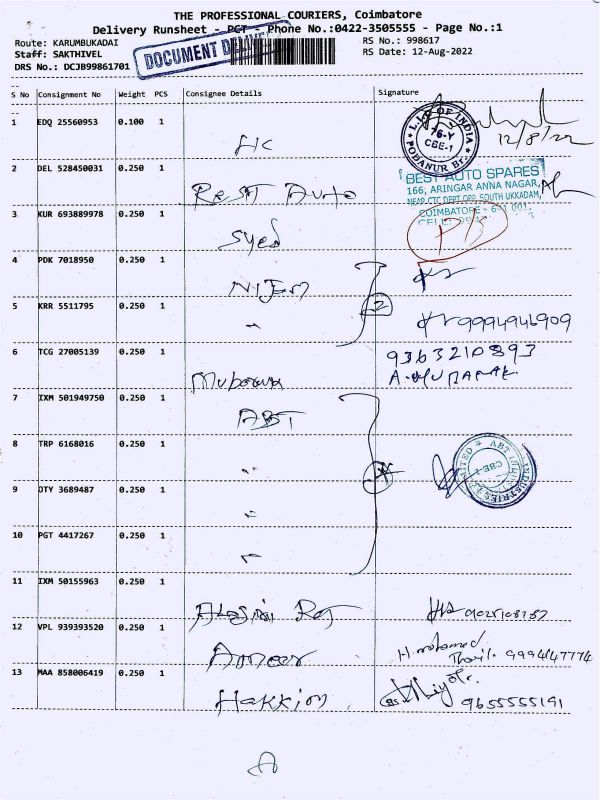 THE PROFESSIONAL COURIERS, Coimbatore
Delivery Runsheet - PGT - Phone No.:0422-3505555 - Page No.:1
Route: KARUMBUKADAI RS No.: 998617
Staff: SAKTHIVEL RS Date: 12-Aug-2022
DRS No.: DCJB99861701
DOCUMENT DELIVE
S No Consignment No Weight PCS Consignee Details Signature
1 EDQ 25560953 0.100 1
L.I.C OF INDIA 76-Y CBE-1 PODANUR Br.
12/8/22
2 DEL 528450031 0.250 1 Best Auto
BEST AUTO SPARES
166, ARINGAR ANNA NAGAR,
NEAR CTC DEPT OPP. SOUTH UKKADAM,
COIMBATORE - 641 001.
3 KUR 693889978 0.250 1 Syed
4 PDK 7018950 0.250 1 NIFM
2
5 KRR 5511795 0.250 1 " 9994946909
6 TCG 27005139 0.250 1 Mubarak 9363210893
A. MUBARAK
7 IXM 501949750 0.250 1 ABT
8 TRP 6168016 0.250 1 "
ABT INDUSTRIES LIMITED CBE-1
9 OTY 3689487 0.250 1 "
10 PGT 4417267 0.250 1 "
11 IXM 50155963 0.250 1
12 VPL 939393520 0.250 1 Ameer H. mohamed
9994147774
13 MAA 858006419 0.250 1 Hakkim 9655555191